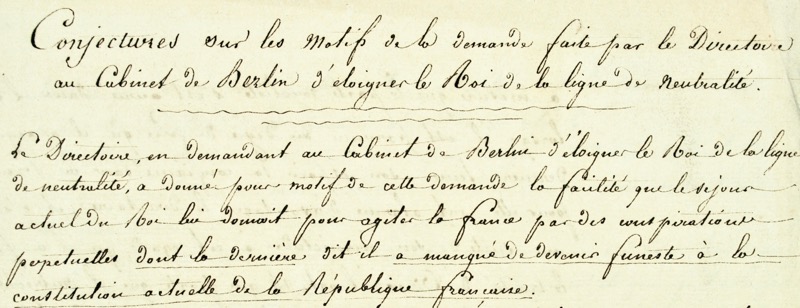 Conjectures sur les motifs de la demande faite par le Directoire
au Cabinet de Berlin d'éloigner le Roi de la ligne de neutralité.
Le Directoire, en demandant au Cabinet de Berlin d'éloigner le Roi de la ligne
de neutralité, a donné pour motif de cette demande la facilité que le séjour
actuel du Roi lui donnoit pour agiter la france par des conspirations
perpetuelles dont la dernière dit il a manqué de devenir funeste à la
constitution actuelle de la République francaise.